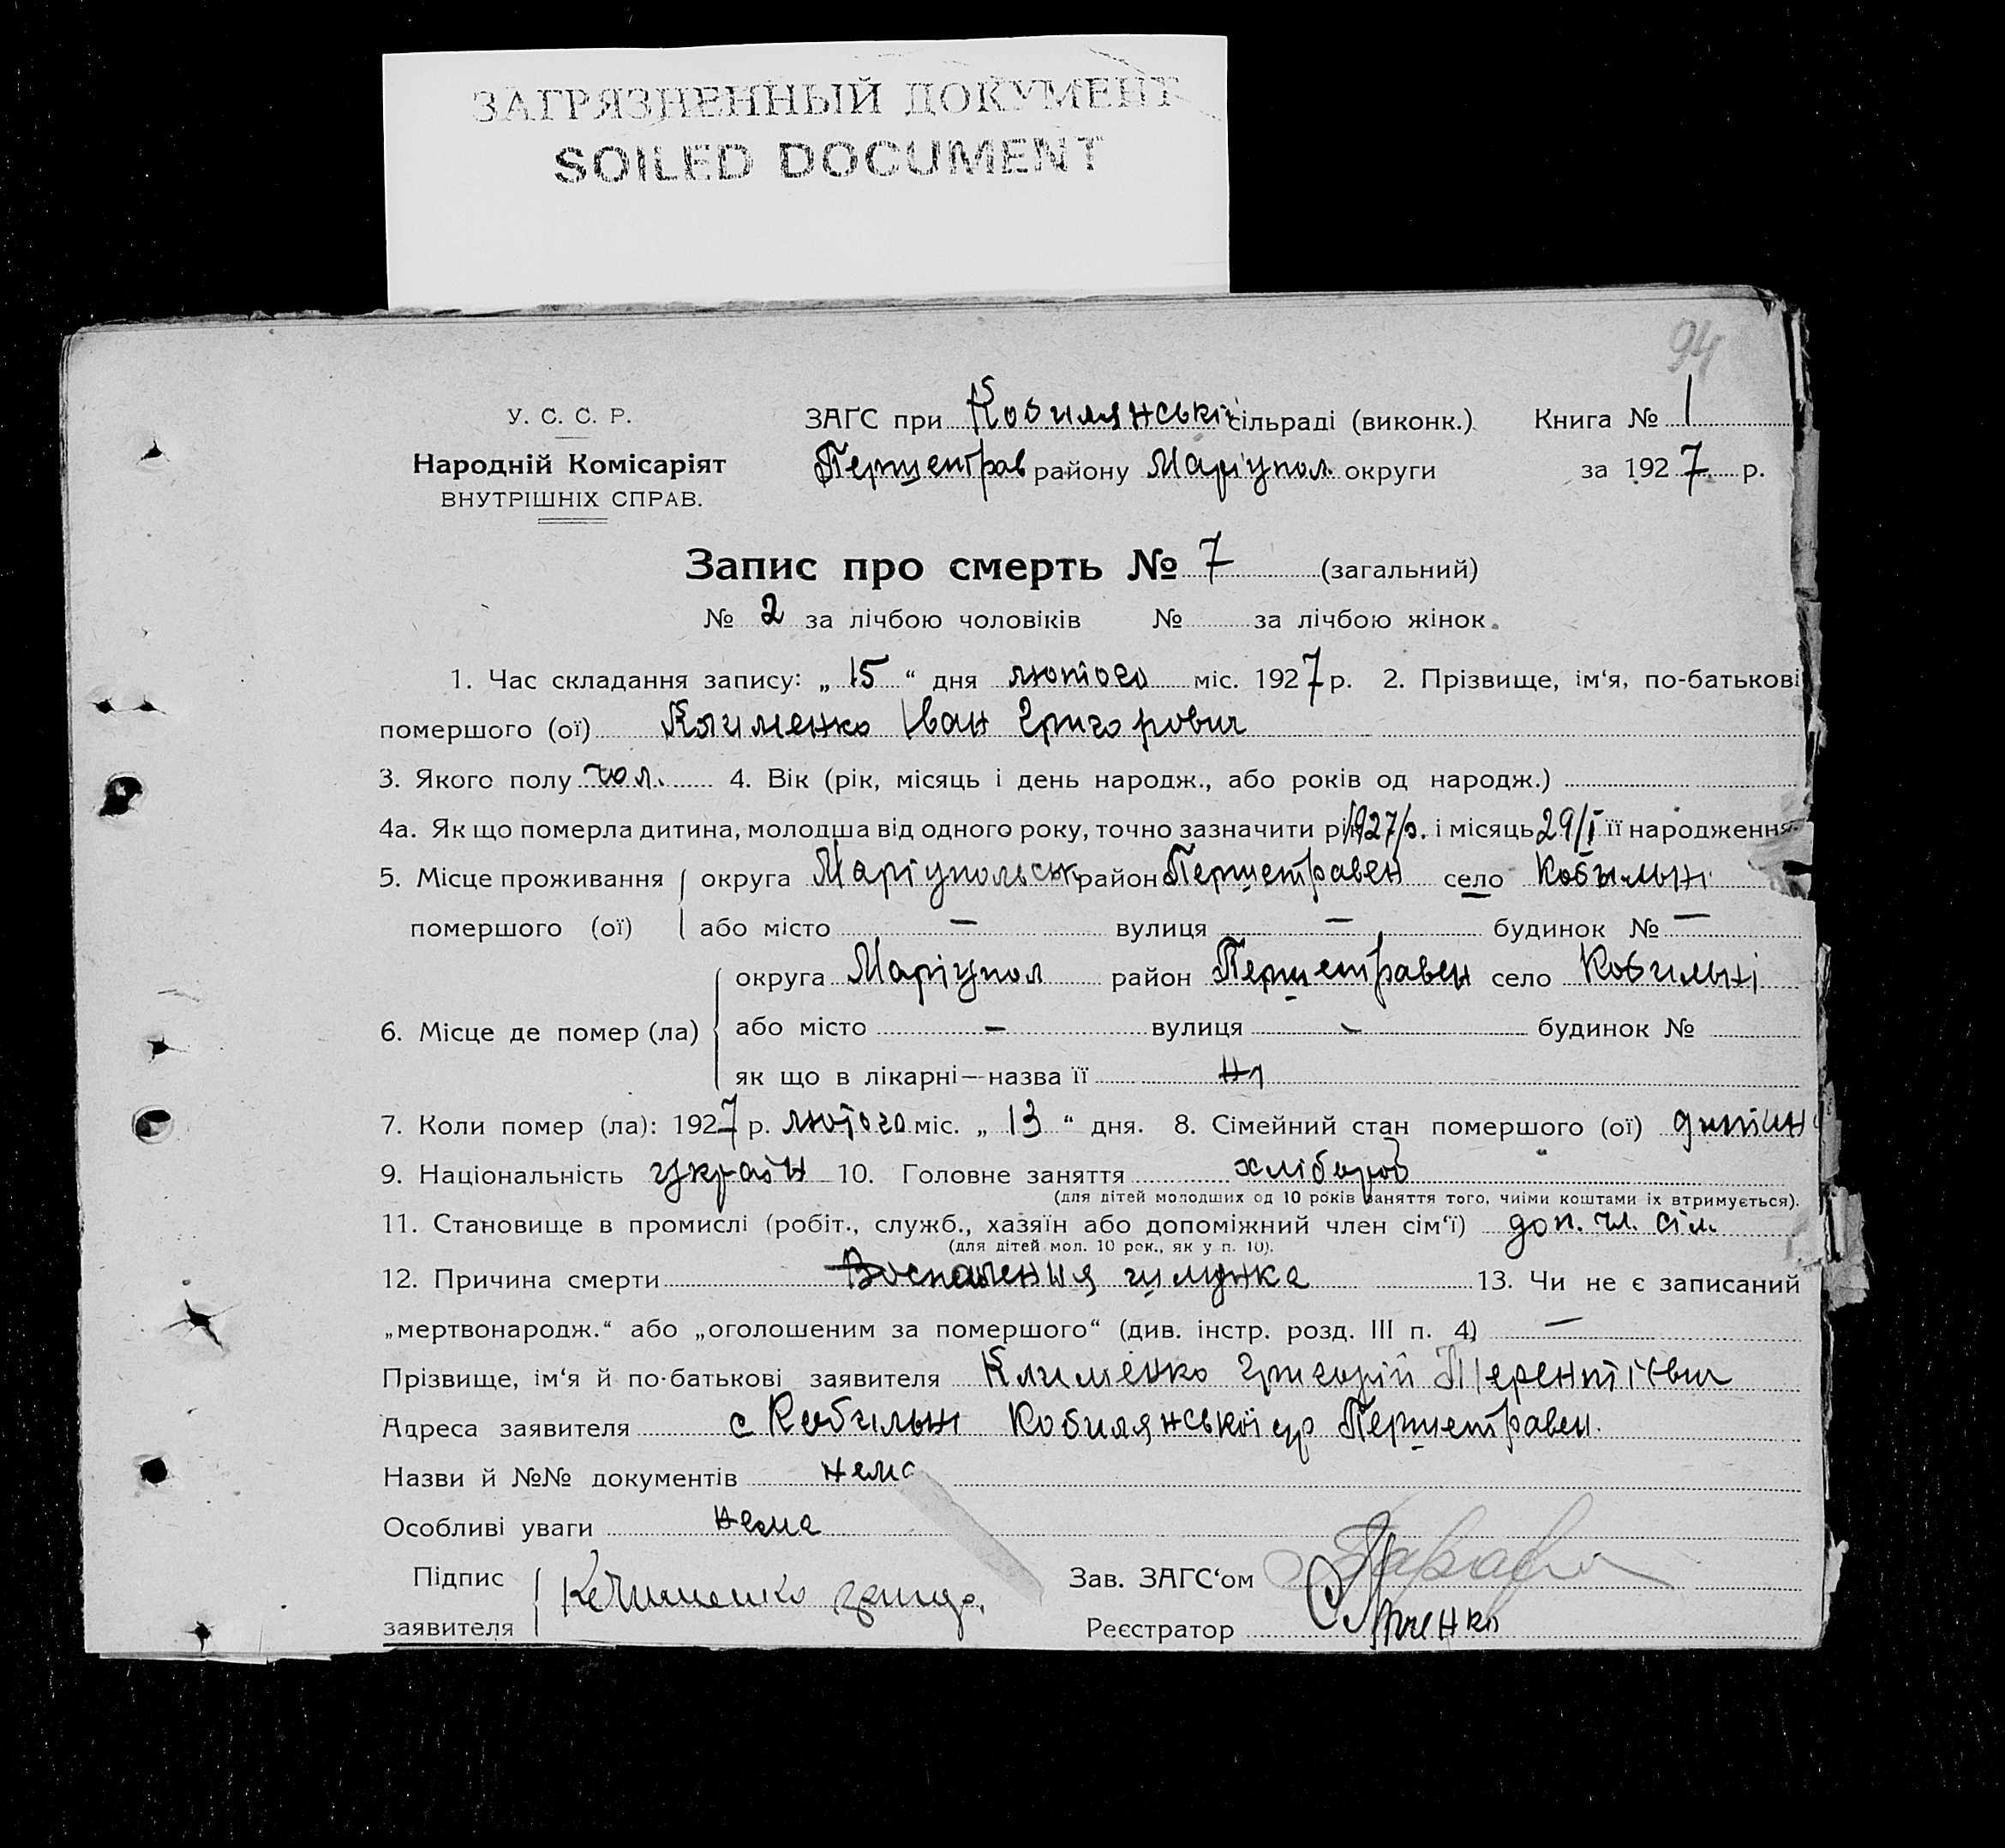 ЗАГРЯЗНЕННЫЙ ДОКУМЕНТ
SOILED DOCUMENT
94
У. С. С. Р. ЗАҐС при Кобилянській сільраді (виконк.) Книга № 1
Народній Комісаріят Першетрав району Маріупол. округи за 1927 р.
ВНУТРІШНІХ СПРАВ.
Запис про смерть № 7 (загальний)
№ 2 за лічбою чоловіків № за лічбою жінок.
1. Час складання запису: „ 15 “ дня лютого міс. 1927 р. 2. Прізвище, ім‘я, по-батькові
помершого (ої) Клименко Іван Григорович
3. Якого полу чол. 4. Вік (рік, місяць і день народж., або років од народж.)
4а. Як що померла дитина, молодша від одного року, точно зазначити рік 1927 р. і місяць 29/I її народження
5. Місце проживання округа Маріупольськ район Першетравен село Кобильні
помершого (ої) або місто — вулиця — будинок № —
округа Маріупол район Першетравен село Кобильні
6. Місце де помер (ла) або місто – вулиця – будинок №
як що в лікарні—назва її
7. Коли помер (ла): 1927 р. лютого міс. „ 13 “ дня. 8. Сімейний стан помершого (ої) дитин
9. Національність україн 10. Головне заняття хлібороб
(для дітей молодших од 10 років заняття того, чиїми коштами їх втримується).
11. Становище в промислі (робіт., служб., хазяїн або допоміжний член сім‘ї) доп. чл. сім.
(для дітей мол. 10 рок., як у п. 10).
12. Причина смерти 13. Чи не є записаний
„мертвонародж.“ або „оголошеним за помершого“ (див. інстр. розд. III п. 4) —
Прізвище, ім‘я й по-батькові заявителя Клименко Григорій Терентієвич
Адреса заявителя с Кобильні Кобилянської Першетравен.
Назви й №№ документів нема
Особливі уваги нема
Підпис Зав. ЗАҐС‘ом
заявителя Клименко
Реєстратор